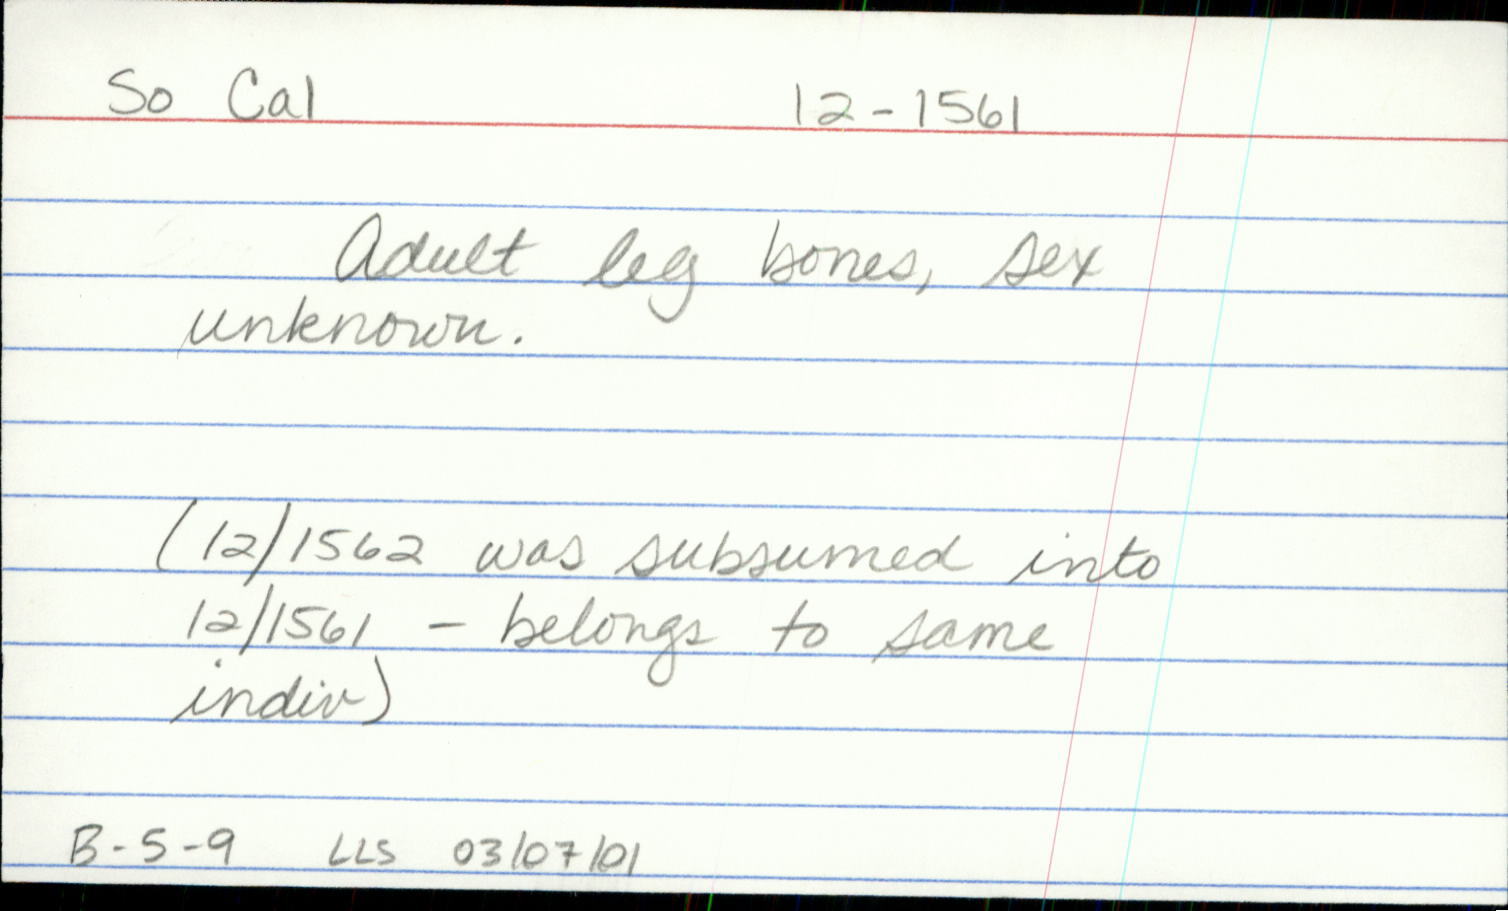 So Cal 12-1561
Adult leg bones, sex
unknown.
(12/1562 was subsumed into
12/1561 - belongs to same
indiv)
B-5-9 LLS 03/07/01